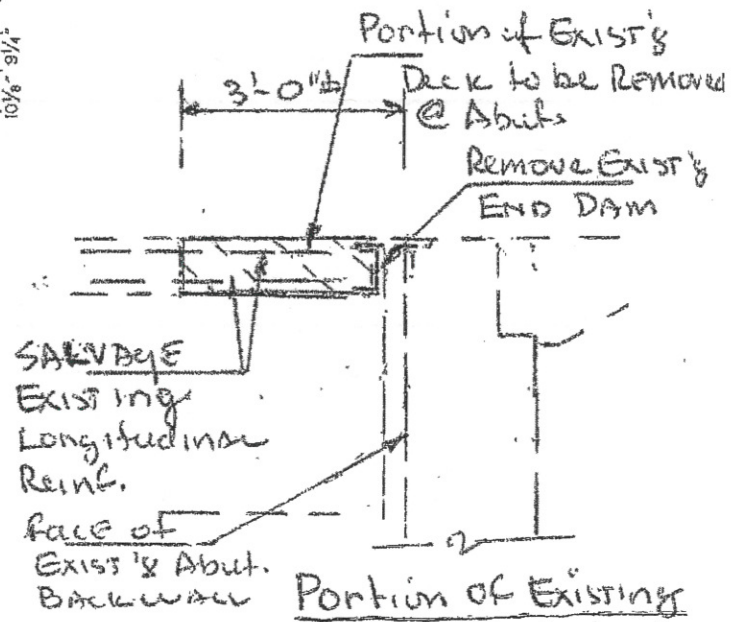 10⅛" 9¼"
Portion of Exist'g
Deck to be Removed
@ Abuts
3'-0"±
Remove Exist'g
END DAM
SALVAGE
EXISTING
Longitudinal
Reinf.
FACE of
EXIST'g Abut.
BACKWALL
Portion Of Existing